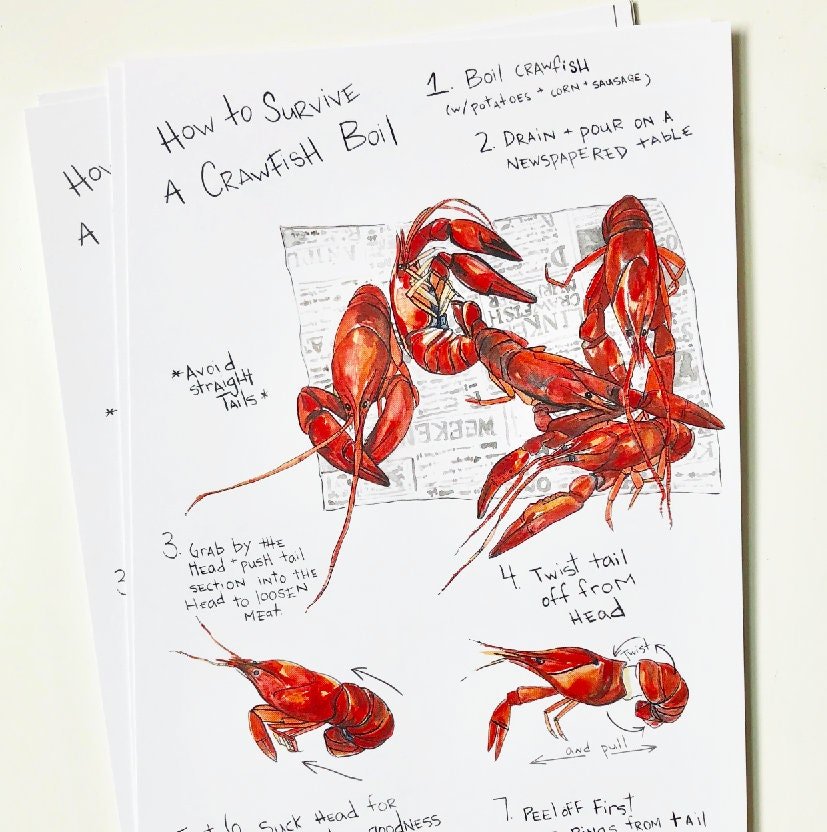 How to Survive
A Crawfish Boil
1. Boil crawfish
(w/potatoes + corn + sausage)
2. Drain + pour on a
newspapered table
*Avoid
straight
Tails*
3. Grab by the
Head + push tail
section into the
Head to loosen
meat.
4. Twist tail
off from
Head
Twist
and pull
Suck Head for
7. Peel off First
rings from tail
How
A
*
3